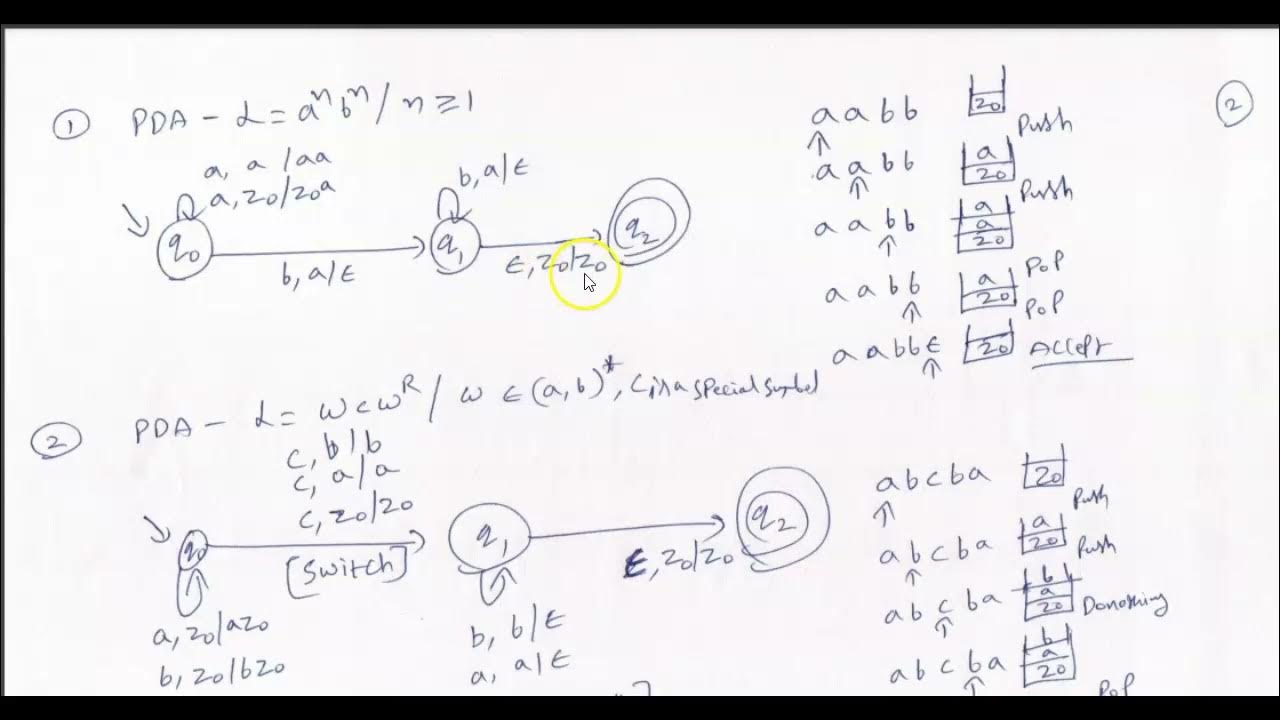 ① PDA - L = aⁿbⁿ / n ≥ 1
②
a, a / aa
a, z0 / z0a
b, a / ε
q0
q1
q2
b, a / ε
ε, z0 / z0
a a b b
z0
Push
a a b b
a
z0
Push
a a b b
a
a
z0
PoP
a a b b
a
z0
PoP
a a b b ε
z0
Accept
② PDA - L = wcwᴿ / w ∈ (a, b)*, C is a special symbol
c, b / b
c, a / a
c, z0 / z0
q0
[Switch]
q1
q2
ε, z0 / z0
a, z0 / az0
b, z0 / bz0
b, b / ε
a, a / ε
a b c b a
z0
Push
a b c b a
a
z0
Push
a b c b a
b
a
z0
Donothing
a b c b a
b
a
z0
PoP